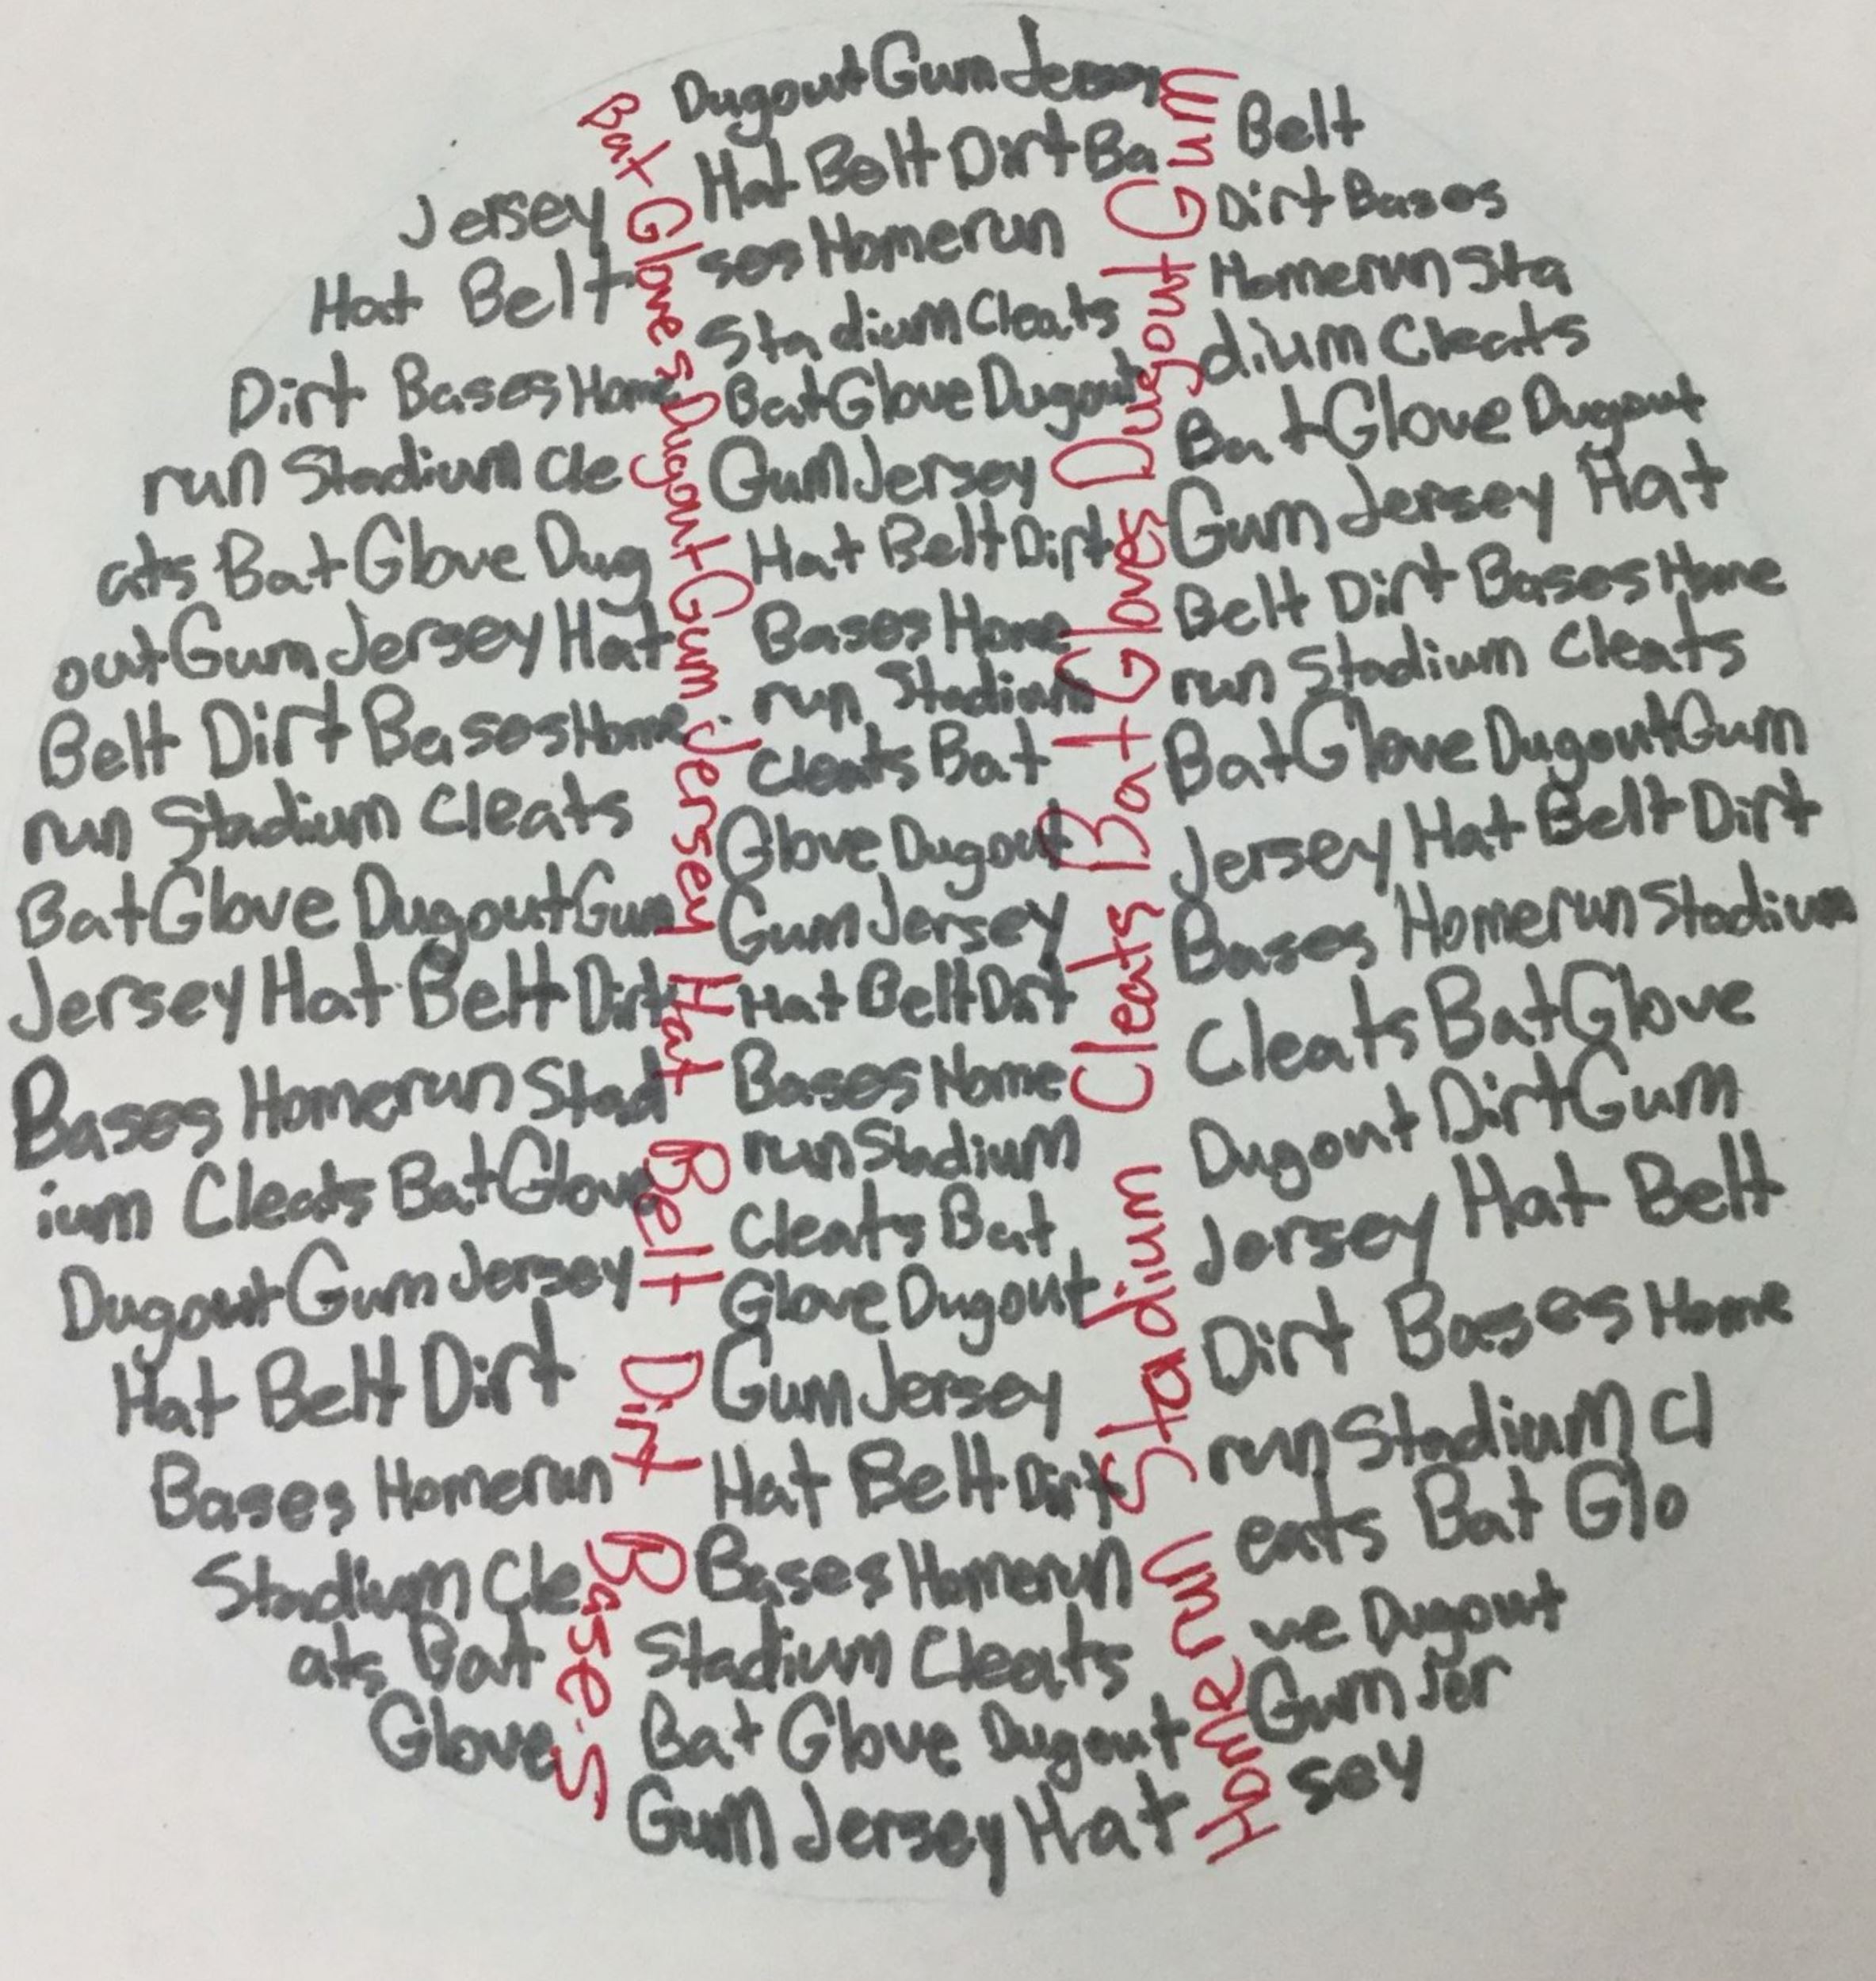 Jersey
Hat Belt
Dirt Bases Home
run Stadium Cle
ats Bat Glove Dug
out Gum Jersey Hat
Belt Dirt Bases Home
run Stadium Cleats
Bat Glove Dugout Gum
Jersey Hat Belt Dirt
Bases Homerun Stad
ium Cleats Bat Glove
Dugout Gum Jersey
Hat Belt Dirt
Bases Homerun
Stadium Cle
ats Bat
Glove
Bat Gloves Dugout Gum Jersey Hat Belt Dirt Bases
Dugout Gum Jersey
Hat Belt Dirt Ba
ses Homerun
Stadium Cleats
Bat Glove Dugout
Gum Jersey
Hat Belt Dirt
Bases Home
run Stadium
Cleats Bat
Glove Dugout
Gum Jersey
Hat Belt Dirt
Bases Home
run Stadium
Cleats Bat
Glove Dugout
Gum Jersey
Hat Belt Dirt
Bases Homerun
Stadium Cleats
Bat Glove Dugout
Gum Jersey Hat
Homerun Stadium Cleats Bat Gloves Dugout Gum
Belt
Dirt Bases
Homerun Sta
dium Cleats
Bat Glove Dugout
Gum Jersey Hat
Belt Dirt Bases Home
run Stadium Cleats
Bat Glove Dugout Gum
Jersey Hat Belt Dirt
Bases Homerun Stadium
Cleats Bat Glove
Dugout Dirt Gum
Jersey Hat Belt
Dirt Bases Home
run Stadium Cl
eats Bat Glo
ve Dugout
Gum Jer
sey